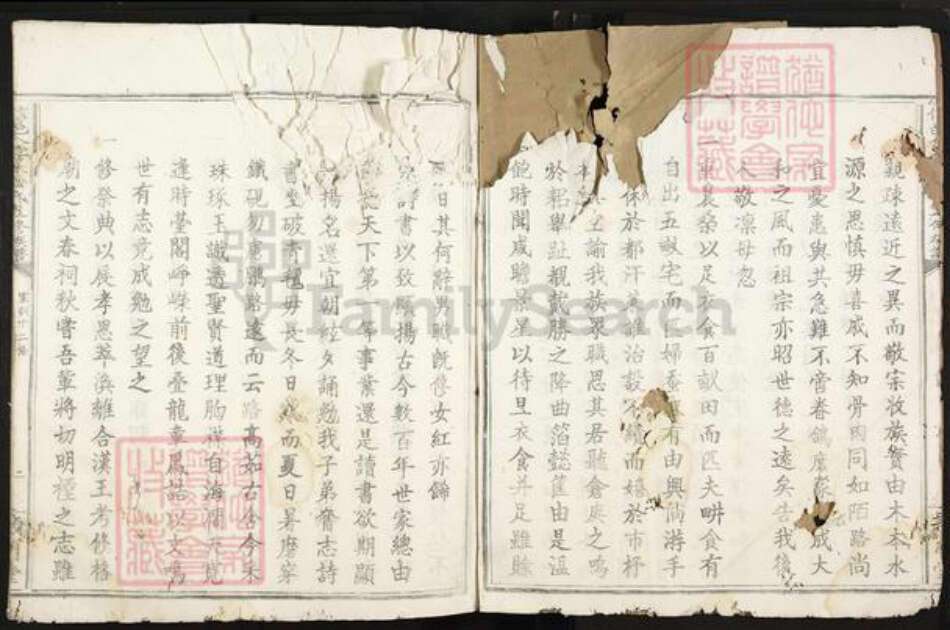 親疎遠近之異而敬宗收族實由木本水
源之思慎毋喜戚不知骨肉同如陌路尚
宜憂患與共急難不啻眷鴒庶家成大
和之風而祖宗亦昭世德之遠矣告我後
人敬凜毋忽
一 農桑以足衣食百畝田而匹夫畊食有
自出五畝宅而匹婦蚕有由興倘游手
休於都汗萊維治設不績而嬉於市杼
上諭我族眾職思其居聽倉庚之鳴
於耜舉趾觀戴勝之降曲箔懿筐由是溫
飽時聞咸瞻景星以待旦衣食并足雖賒
日其何辭與職旣修女紅亦歸
詩書以致顯揚古今數百年世家總由
天下第一等事業還是讀書欲期顯
揚名還宜朝絃夕誦勉我子弟奮志詩
書坐破青氊毋長冬日然而夏日暑磨穿
鐵硯勿意鵬路遠而云路高茹古含今朱
珠琢玉識透聖賢道理胸襟自海濶天寬
逢時臺閣崢嶸前後疊龍章鳳誥以文為
世有志竟成勉之望之
一 修祭典以展孝思萃渙離合漢王考修格
廟之文春祠秋嘗吾輩將切明禋之志雖
FamilySearch